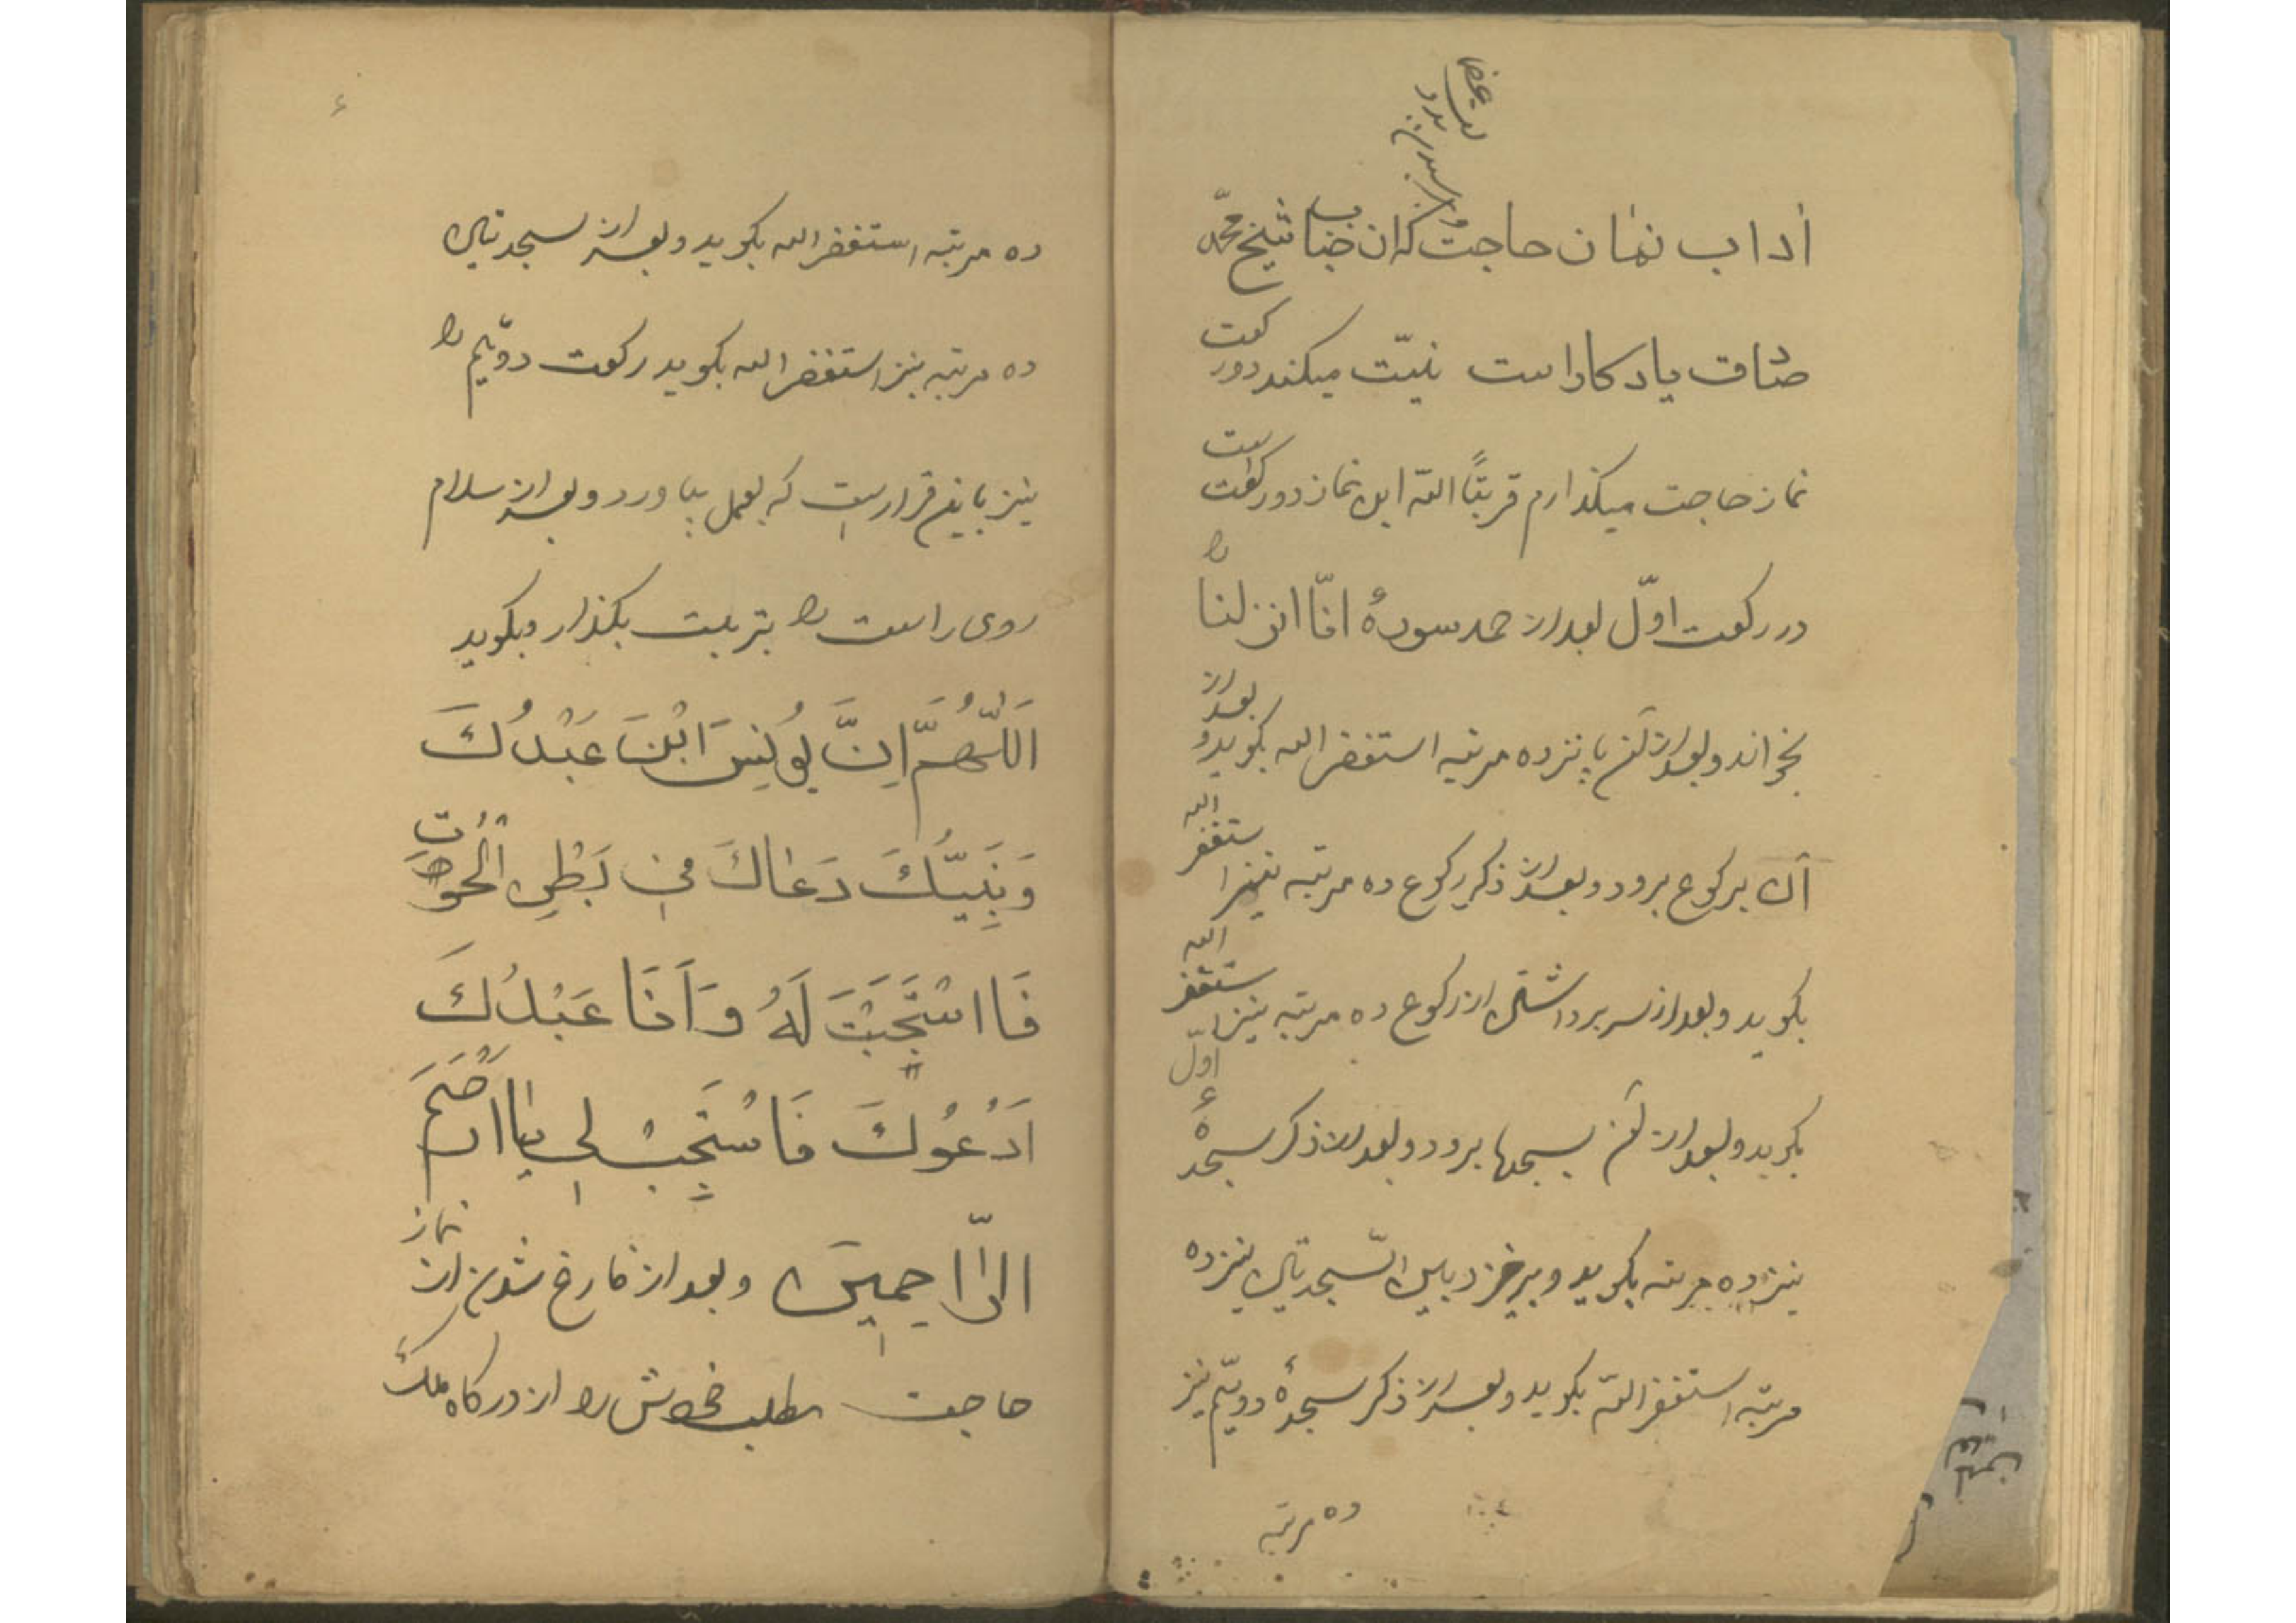 اداب نمٰان حاجت که ان جناب شیخ محمّد
صٰادق یادکار است نیّت میکند دور کعت
نماز حاجت میکذارم قربتًا اللّه این نماز دو رکعت است
در رکعت اوّل بعد از حمد سورهٔ انّا انزلنا را
بخواند و بعد از آن پانزده مرتبه استغفر الله بکوید و بعد از
آن برکوع برود و بعد از ذکر رکوع ده مرتبه نیز استغفر الله
بکوید و بعد از سر برداشتن از رکوع ده مرتبه نیز استغفر الله
بکوید و بعد از آن بسجده برود و بعد از ذکر سجدهٔ اوّل
نیز ده مرتبه بکوید و برخیزد بین السّجدتین نیز ده
مرتبه استغفر اللّه بکوید و بعد از ذکر سجدهٔ دویّم نیز
ده مرتبه
ده مرتبه استغفر الله بکوید و بعد از سجدتین
ده مرتبه نیز استغفر الله بکوید رکعت دویّم را
نیز باین قرار است که بعمل بیاورد و بعد از سلام
روی راست را بتربت بکذار و بکوید
اَللّٰهُمَّ اِنَّ یُونِسَ ابْنَ عَبْدُكَ
وَنَبِیَّكَ دَعٰاكَ فی بَطْنِ الْحُوتِ
فَااسْتَجَبْتَ لَهُ وَاَنَا عَبْدُكَ
اَدْعُوكَ فَاسْتَجِبْ لی یٰا اَرْحَمَ
الرّٰاحِمینَ و بعد از فارغ شدن از نماز
حاجت مطلب خوش را از درکاه ملك